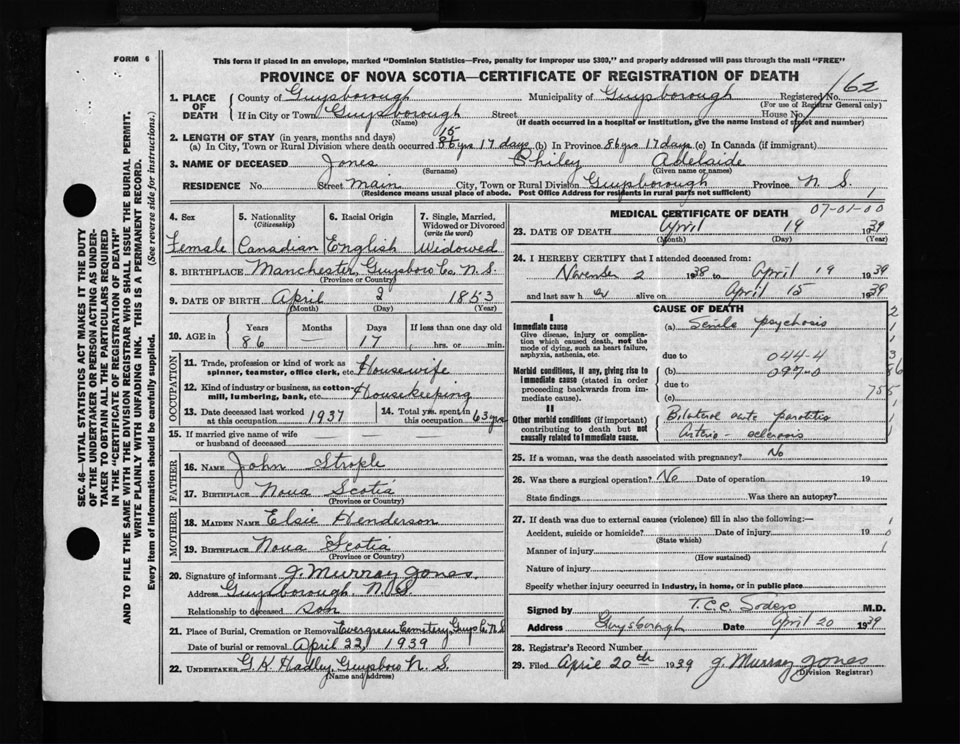 FORM 6
This form if placed in an envelope, marked "Dominion Statistics—Free, penalty for improper use $300," and properly addressed will pass through the mail "FREE"
PROVINCE OF NOVA SCOTIA—CERTIFICATE OF REGISTRATION OF DEATH
SEC. 46—VITAL STATISTICS ACT MAKES IT THE DUTY
OF THE UNDERTAKER OR PERSON ACTING AS UNDER-
TAKER TO OBTAIN ALL THE PARTICULARS REQUIRED
IN THE "CERTIFICATE OF REGISTRATION OF DEATH"
AND TO FILE THE SAME WITH THE DIVISION REGISTRAR WHO SHALL ISSUE THE BURIAL PERMIT.
WRITE PLAINLY WITH UNFADING INK. THIS IS A PERMANENT RECORD.
Every item of information should be carefully supplied. (See reverse side for instructions.)
1. PLACE OF DEATH County of Guysborough Municipality of Guysborough Registered No. 162
(For use of Registrar General only)
If in City or Town Guysborough Street House No.
(Name) (If death occurred in a hospital or institution, give the name instead of street and number)
2. LENGTH OF STAY (in years, months and days)
(a) In City, Town or Rural Division where death occurred 15 yrs 17 days (b) In Province 86 yrs 17 days (c) In Canada (if immigrant)
3. NAME OF DECEASED Jones Philey Adelaide
(Surname) (Given name or names)
RESIDENCE No. Street Main City, Town or Rural Division Guysborough Province N. S.
(Residence means usual place of abode. Post Office Address for residents in rural parts not sufficient)
4. Sex 5. Nationality (Citizenship) 6. Racial Origin 7. Single, Married, Widowed or Divorced (write the word)
Female Canadian English Widowed
8. BIRTHPLACE Manchester, Guysboro Co. N. S.
(Province or Country)
9. DATE OF BIRTH April 2 1853
(Month) (Day) (Year)
10. AGE in Years Months Days If less than one day old
86 — 17 hrs. or min.
OCCUPATION
11. Trade, profession or kind of work as spinner, teamster, office clerk, etc. Housewife
12. Kind of industry or business, as cotton-mill, lumbering, bank, etc. Housekeeping
13. Date deceased last worked at this occupation 1937 14. Total yrs. spent in this occupation 63 yrs
15. If married give name of wife or husband of deceased — — —
FATHER
16. NAME John Strople
17. BIRTHPLACE Nova Scotia
(Province or Country)
MOTHER
18. MAIDEN NAME Elsie Henderson
19. BIRTHPLACE Nova Scotia
(Province or Country)
20. Signature of informant J. Murray Jones.
Address Guysborough N. S.
Relationship to deceased Son
21. Place of Burial, Cremation or Removal Evergreen Cemetery, Guys Co. N. S.
Date of burial or removal April 22, 1939
22. UNDERTAKER G. K. Hadley, Guysboro N. S.
(Name and address)
MEDICAL CERTIFICATE OF DEATH 07-01-00
23. DATE OF DEATH April 19 1939
(Month) (Day) (Year)
24. I HEREBY CERTIFY that I attended deceased from:
November 2 1938 to April 19 1939
and last saw h er alive on April 15 1939
CAUSE OF DEATH
I
Immediate cause
Give disease, injury or complication which caused death, not the mode of dying, such as heart failure, asphyxia, asthenia, etc.
(a) Senile psychosis
due to 044-4
Morbid conditions, if any, giving rise to immediate cause (stated in order proceeding backwards from immediate cause).
(b) 097-0
due to
(c)
II
Other morbid conditions (if important) contributing to death but not causally related to immediate cause.
Bilateral acute parotitis
Arterio-sclerosis
25. If a woman, was the death associated with pregnancy? No
26. Was there a surgical operation? No Date of operation 19
State findings Was there an autopsy?
27. If death was due to external causes (violence) fill in also the following:—
Accident, suicide or homicide? Date of injury 19
(State which)
Manner of injury
(How sustained)
Nature of injury
Specify whether injury occurred in industry, in home, or in public place
Signed by T. C. C. Sodero M.D.
Address Guysborough Date April 20 1939
28. Registrar's Record Number
29. Filed April 20th 1939 J. Murray Jones
(Division Registrar)